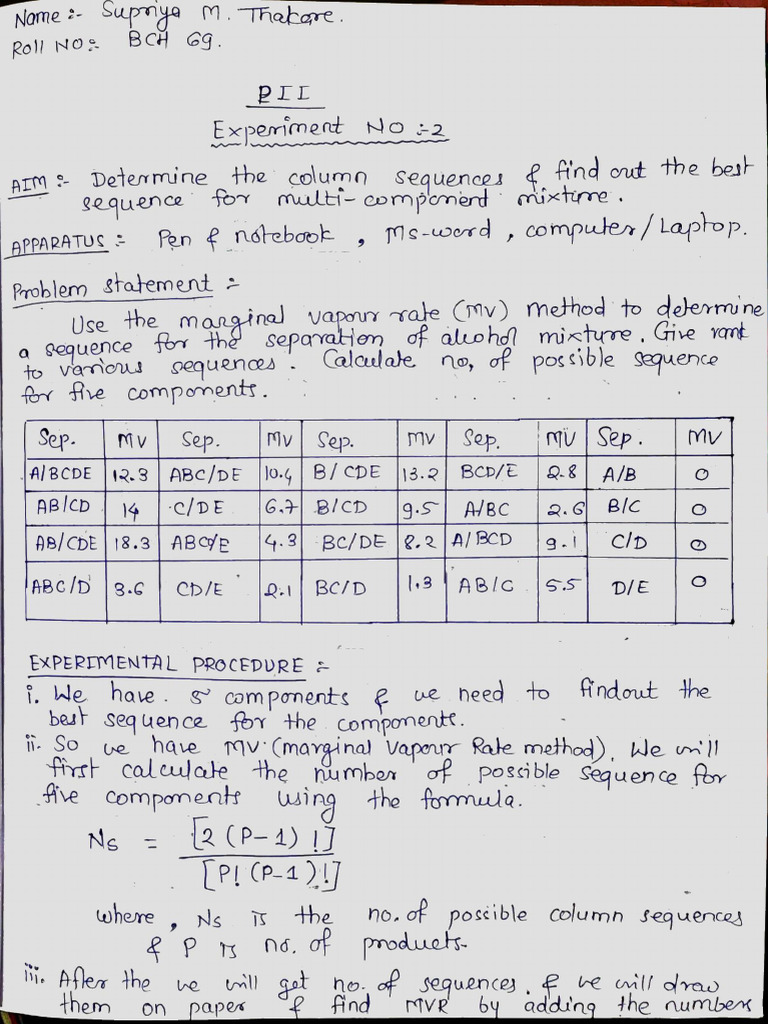 Name :- Supriya M. Thakare.
Roll NO :- BCH 69.
PII
Experiment NO :-2
AIM :- Determine the column sequences & find out the best
sequence for multi-component mixture.
APPARATUS :- Pen & notebook, Ms-word, computer/Laptop.
Problem statement :-
Use the marginal vapour rate (MV) method to determine
a sequence for the separation of alcohol mixture. Give rank
to various sequences. Calculate no, of possible sequence
for five components.
Sep. MV Sep. MV Sep. MV Sep. MV Sep. MV
A/BCDE 12.3 ABC/DE 10.4 B/CDE 13.2 BCD/E 2.8 A/B 0
AB/CD 14 C/DE 6.7 B/CD 9.5 A/BC 2.6 B/C 0
AB/CDE 18.3 ABCD/E 4.3 BC/DE 8.2 A/BCD 9.1 C/D 0
ABC/D 3.6 CD/E 2.1 BC/D 1.3 AB/C 5.5 D/E 0
EXPERIMENTAL PROCEDURE :-
i. We have 5 components & we need to findout the
best sequence for the components.
ii. So we have MV (marginal Vapour Rate method). We will
first calculate the number of possible sequence for
five components using the formula.
Ns = [2 (P-1) !] / [P! (P-1)!]
where, Ns is the no. of possible column sequences
& P is no. of products.
iii. After the we will get no. of sequences. & we will draw
them on paper & find MVR by adding the numbers